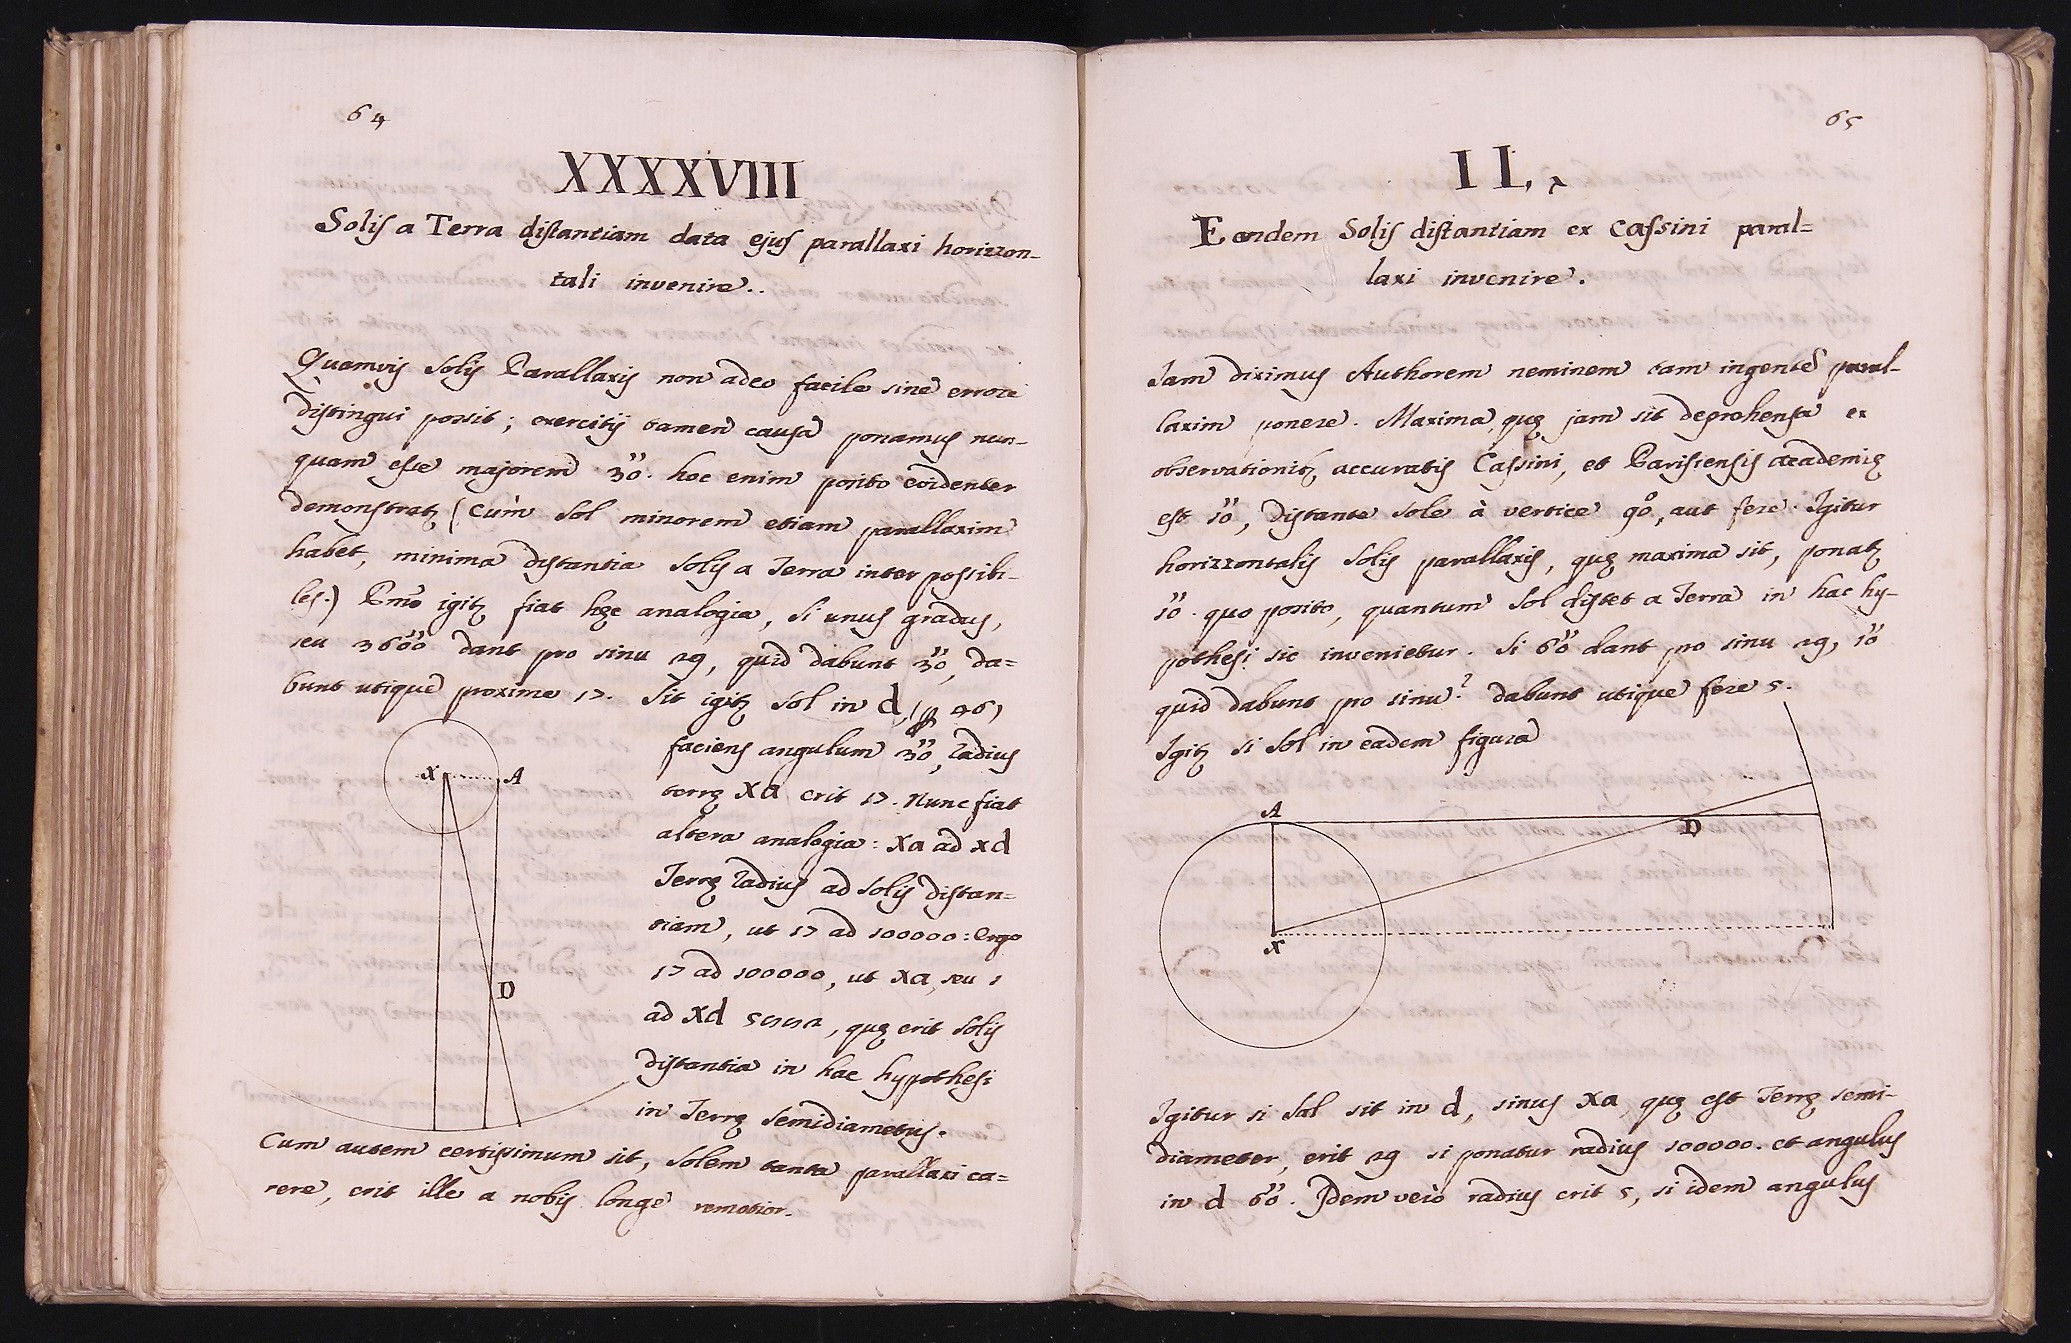 64
XXXXVIII
Solis a Terra distantiam data ejus parallaxi horizzon-
tali invenire.
Quamvis Solis Parallaxis non adeo facile sine errore
distingui possit; exercitij tamen causa ponamus nun-
quam esse majorem 30''. hoc enim posito evidenter
demonstratꝫ (cùm Sol minorem etiam parallaxim
habet, minima distantia Solis a Terra inter possibi-
les.) Pmò igitꝫ fiat hęc analogia, Si unus gradus,
seu 3600'' dant pro sinu 29, quid dabunt 30'', da=
bunt utique proxime 17. Sit igitꝫ Sol in d, (p 46)
faciens angulum 30'', radius
terrę Xa erit 17. Nunc fiat
altera analogia: Xa ad xd
Terrę radius ad Solis distan=
tiam, ut 17 ad 100000: Ergo
17 ad 100000, ut Xa, seu 1
ad Xd, quę erit Solis
distantia in hac hypothesi
in Terrę Semidiametris.
Cum autem certissimum sit, Solem tanta parallaxi ca=
rere, erit ille a nobis longè remotior.
X A
D
65
IL.
Eandem Solis distantiam ex Cassini paral=
laxi invenire.
Jam diximus Authorem neminem tam ingentē paral-
laxim ponere. Maxima, quę jam sit deprohensa ex
observationibꝫ accuratis Cassini, et Parisiensis academię
est 10'', distante Sole à vertice 90°, aut fere. Igitur
horizzontalis Solis parallaxis, quę maxima sit, ponatꝫ
10''. quo posito, quantum Sol distet a Terra in hac hy-
pothesi sic invenietur. Si 60'' dant pro sinu 29, 10''
quid dabunt pro sinu? dabunt utique fere 5.
Igitꝫ si Sol in eadem figura
A
D
X
Igitur si Sol sit in d, sinus Xa, quę est Terrę semi-
diameter, erit 29 si ponatur radius 100000. et angulus
in d 60''. Idem verò radius erit 5, si idem angulus